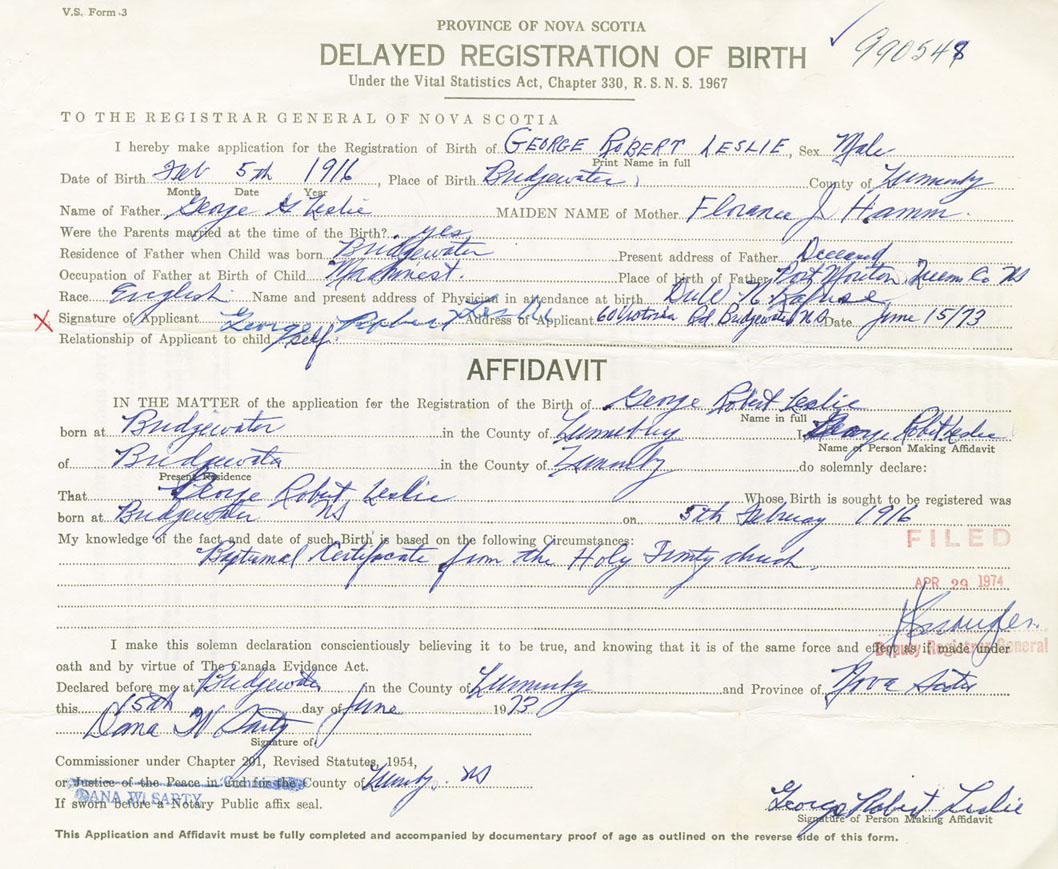 V.S. Form 3
PROVINCE OF NOVA SCOTIA
990548
DELAYED REGISTRATION OF BIRTH
Under the Vital Statistics Act, Chapter 330, R. S. N. S. 1967
TO THE REGISTRAR GENERAL OF NOVA SCOTIA
I hereby make application for the Registration of Birth of GEORGE ROBERT LESLIE, Sex Male
Print Name in full
Date of Birth Feb 5th 1916, Place of Birth Bridgewater, County of
Month Date Year
Name of Father George G Leslie MAIDEN NAME of Mother Florence J Hamm.
Were the Parents married at the time of the Birth? yes
Residence of Father when Child was born Bridgewater Present address of Father
Occupation of Father at Birth of Child Place of birth of Father Port Co NS
Race English Name and present address of Physician in attendance at birth
X Signature of Applicant George Robert Leslie Address of Applicant 60 Victoria Rd. Bridgewater NS Date June 15/73
Relationship of Applicant to child self.
AFFIDAVIT
IN THE MATTER of the application for the Registration of the Birth of George Robert Leslie
Name in full
born at Bridgewater in the County of I George Robert Leslie
Name of Person Making Affidavit
of Bridgewater in the County of do solemnly declare:
Present Residence
That George Robert Leslie Whose Birth is sought to be registered was
born at Bridgewater NS on 5th February 1916
My knowledge of the fact and date of such Birth is based on the following Circumstances:
Certificate from the Holy church.
FILED
APR 29 1974
Deputy Registrar General
I make this solemn declaration conscientiously believing it to be true, and knowing that it is of the same force and effect as if made under
oath and by virtue of The Canada Evidence Act.
Declared before me at Bridgewater in the County of and Province of Nova Scotia
this 15th day of June 1973
Dana W Sarty
Signature of
Commissioner under Chapter 201, Revised Statutes, 1954,
or Justice of the Peace in and for the County of NS
DANA W. SARTY
If sworn before a Notary Public affix seal.
George Robert Leslie
Signature of Person Making Affidavit
This Application and Affidavit must be fully completed and accompanied by documentary proof of age as outlined on the reverse side of this form.